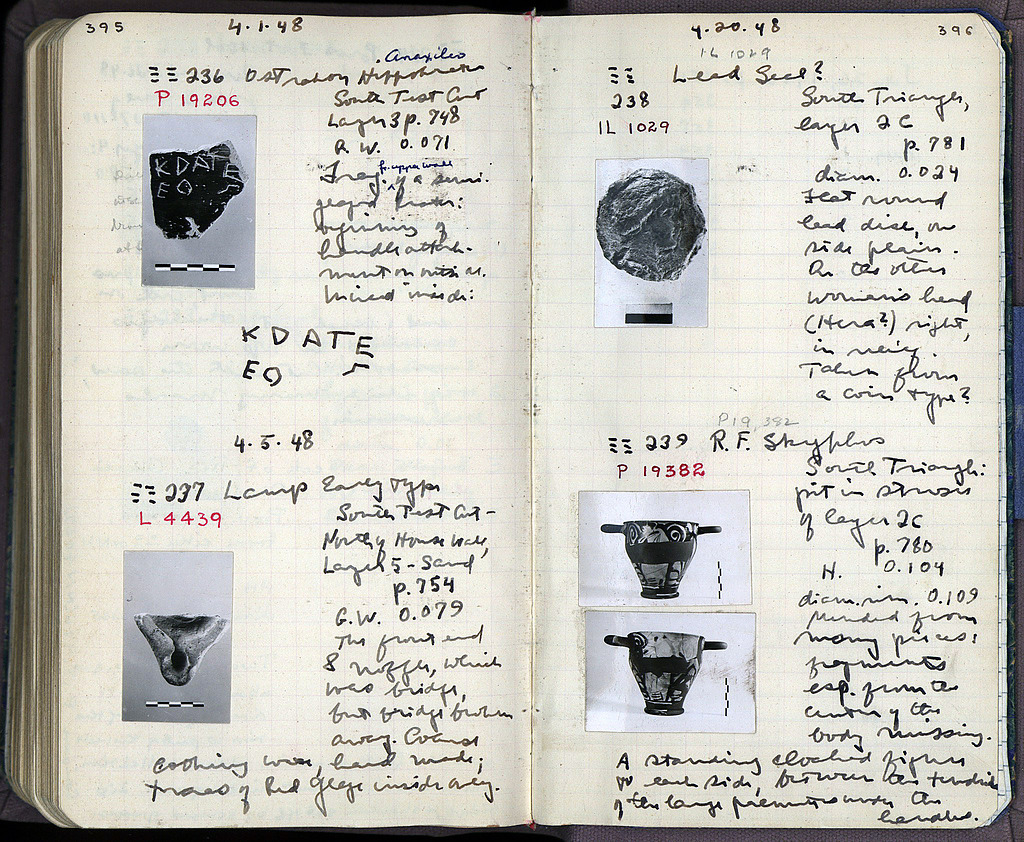 395
4.1.48
236 Ostrakon Hippokrates
Anaxileo
P 19206
South Test Cut
Layer 3 p. 748
P. W. 0.071
Frag. of a semi-
fr. upper wall
glazed krater:
beginning of
handle attach-
ment on outside.
Incised inside:
KDATE
EO S
KDATE
EO S
4.5.48
237 Lamp Early type
L 4439
South Test Cut -
North of House wall,
Layer 5 - Sand
p. 754
G.W. 0.079
The front end
& nozzle, which
was bridge,
but bridge broken
away. Coarse
cooking ware, hand made;
traces of Red glaze inside only.
4.20.48
396
IL 1029
Lead Seal?
238
IL 1029
South Triangle,
layer 2C
p. 781
diam. 0.024
Flat round
lead disk, one
side plain.
On the other
women's head
(Hera?) right,
in relief.
Taken from
a coin type?
P19,382
239 R.F. Skyphos
P 19382
South Triangle:
pit in
of layer 2C
p. 780
H. 0.104
diam. rim. 0.109
Mended from
many pieces;
fragments
esp. from the
center of the
body missing.
A standing cloaked figure
on each side, between the tendrils
of the large palmettes under the
handles.